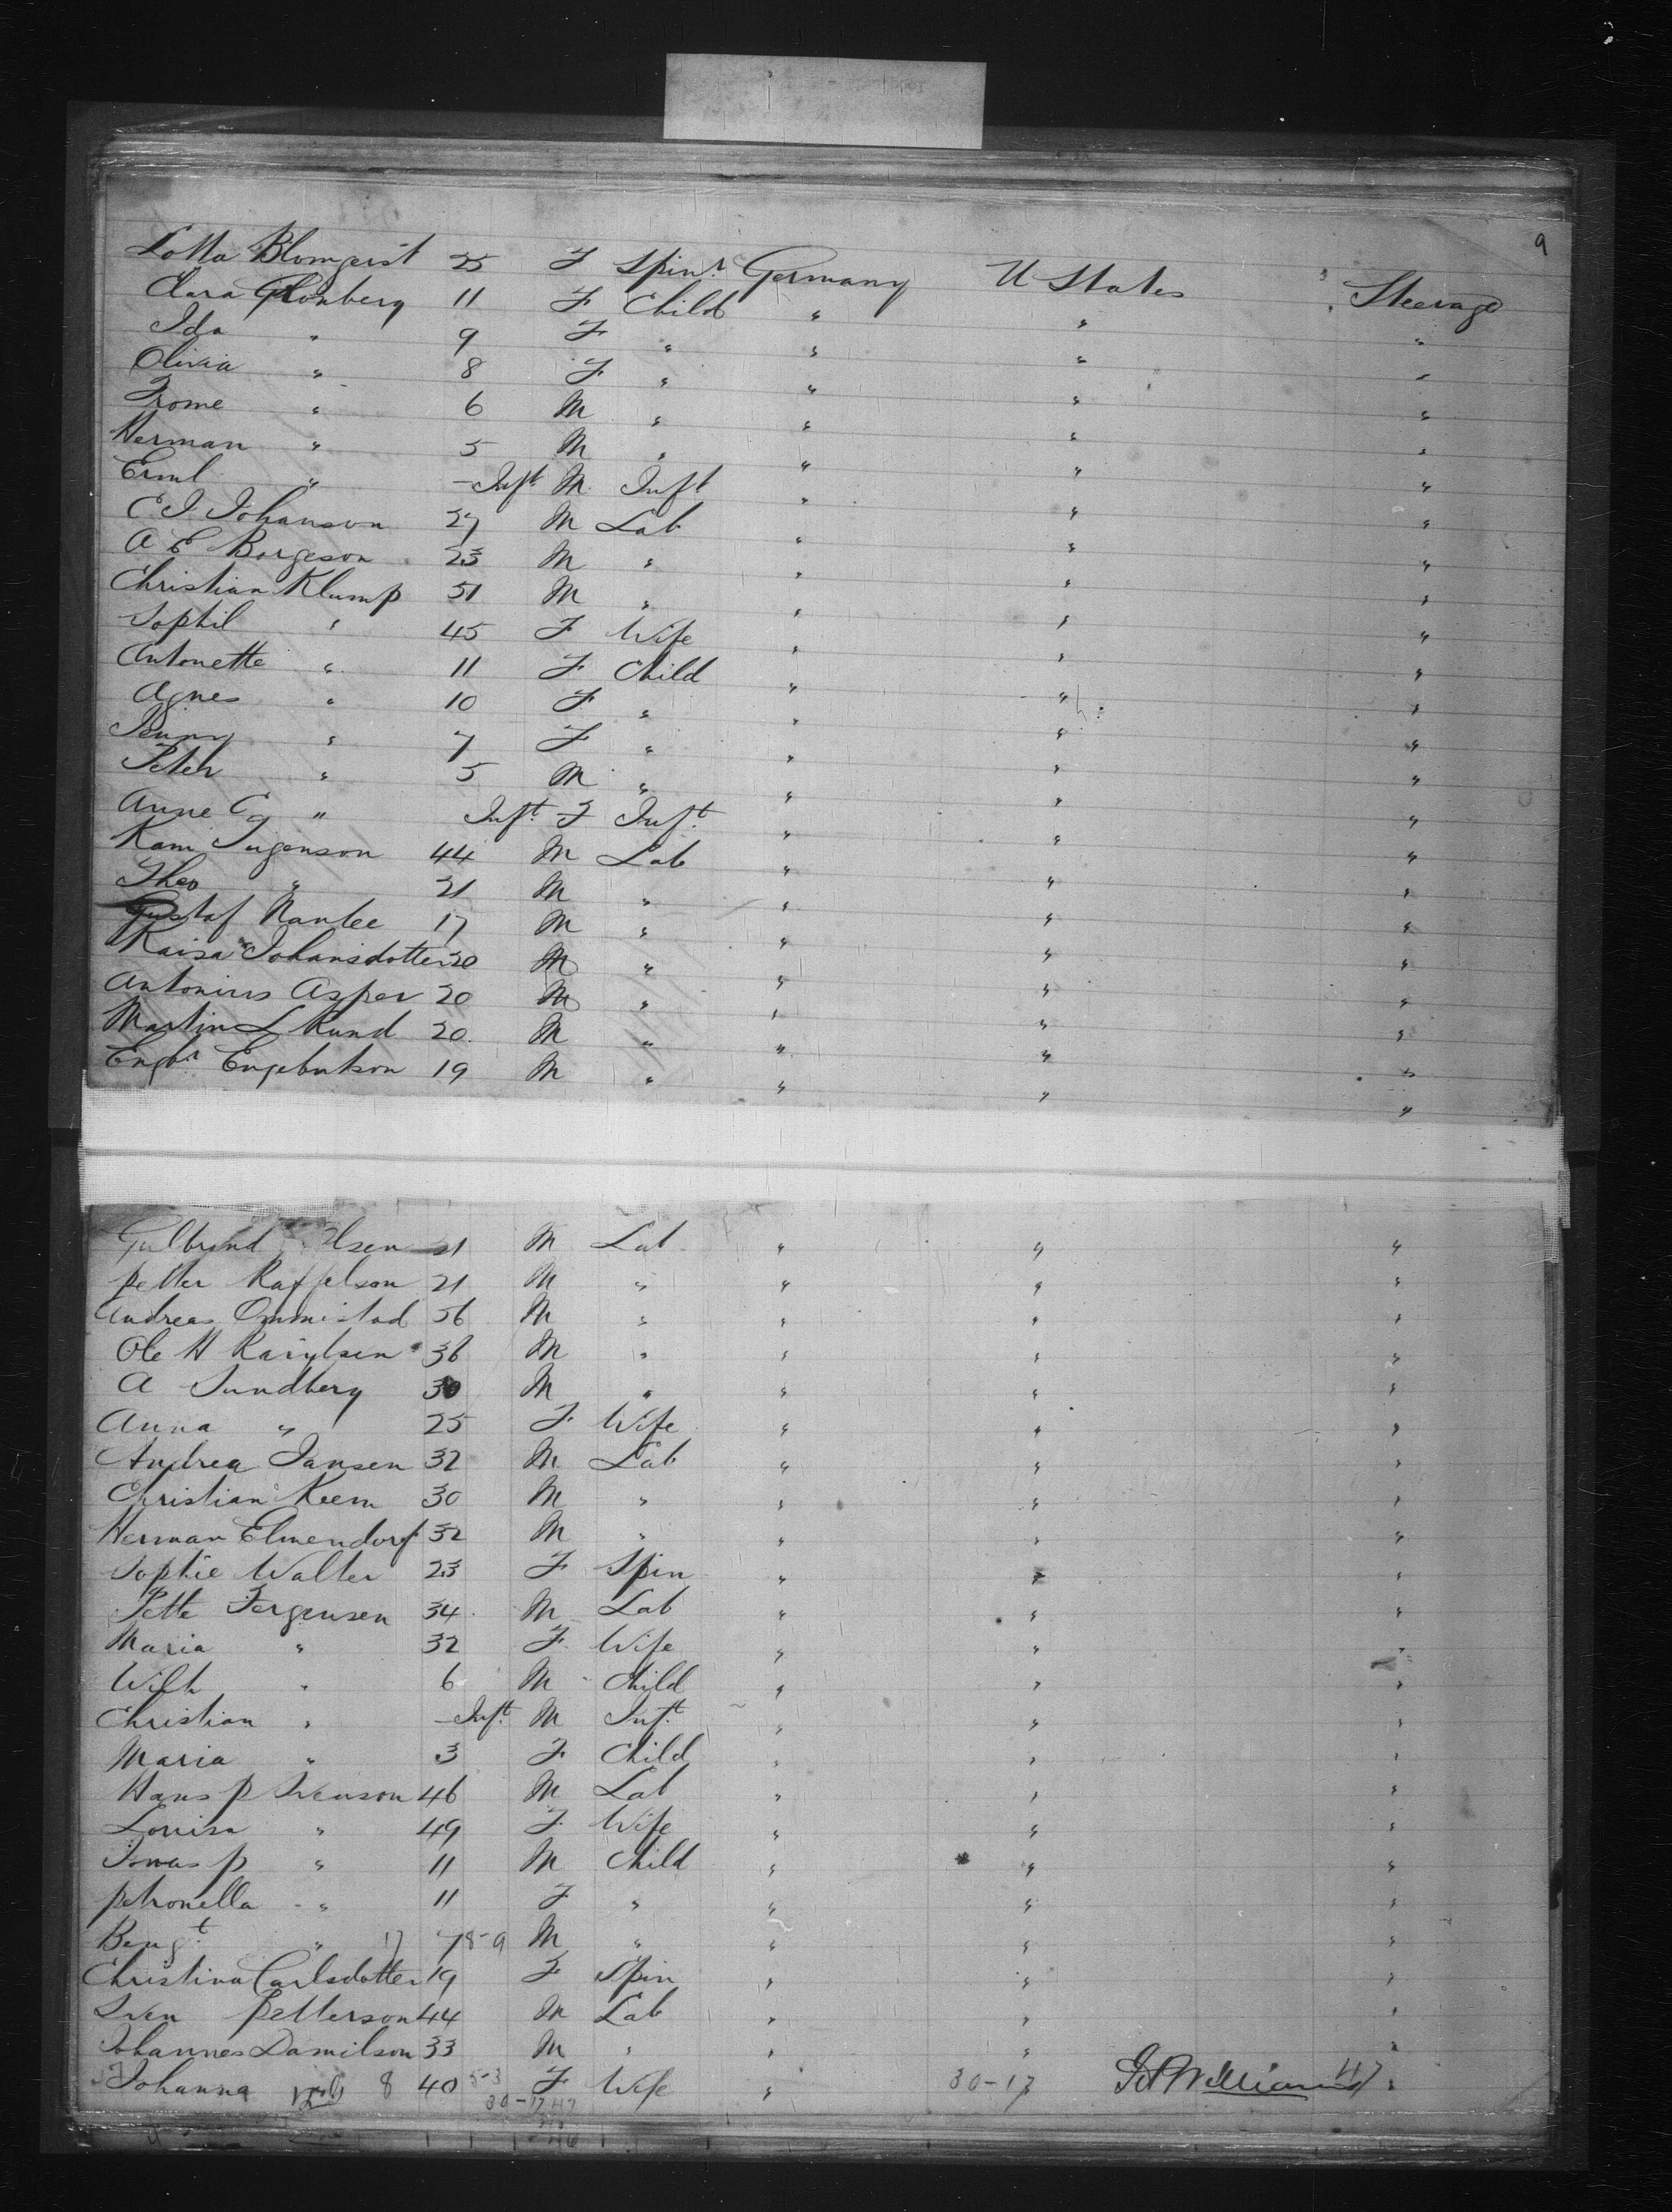 9
Lotta Blomqvist 25 F Spinr Germany U States Steerage
Clara Gronberg 11 F Child " " "
Ida " 9 F " " " "
Olivia " 8 F " " " "
Frome " 6 M " " " "
Herman " 5 M " " " "
Erml " Inft M Inft " " "
C J Johanson 27 M Lab " " "
A E Borgeson 23 M " " " "
Christian Klump 51 M " " " "
Sophil " 45 F Wife " " "
Antonette " 11 F Child " " "
Agnes " 10 F " " " "
Jenny " 7 F " " " "
Peter " 5 M " " " "
Anne C " Inft F Inft " " "
Kam Jugenson 44 M Lab " " "
Theo " 21 M " " " "
Gustaf Nanlee 17 M " " " "
Kaisa Johansdotter 20 M " " " "
Antonius Asper 20 M " " " "
Martin L Rund 20 M " " " "
Engbr Engebutson 19 M " " " "
Gulbrand Olsen 21 M Lab " " "
Petter Raffelson 21 M " " " "
Andreas Ommistad 56 M " " " "
Ole H 36 M " " " "
A Sundberg 30 M " " " "
Anna " 25 F Wife " " "
Andrea Jansen 32 M Lab " " "
Christian Keem 30 M " " " "
Herman Elmendorf 32 M " " " "
Sophie Walter 23 F Spin " " "
Pette Jorgensen 34 M Lab " " "
Maria " 32 F Wife " " "
Wilh " 6 M Child " " "
Christian " Inft M Inft " " "
Maria " 3 F Child " " "
Hans P Svenson 46 M Lab " " "
Louisa " 49 F Wife " " "
Jonas P " 11 M Child " " "
Petronella " 11 F " " " "
Bengt " 17 7 8-9 M " " " "
Christina Carlsdotter 19 F Spin " " "
Sven Petterson 44 M Lab " " "
Johannes Damilson 33 M " " " "
Johanna 8 40 5-3 F Wife " 30-17 47 "
30-17 47